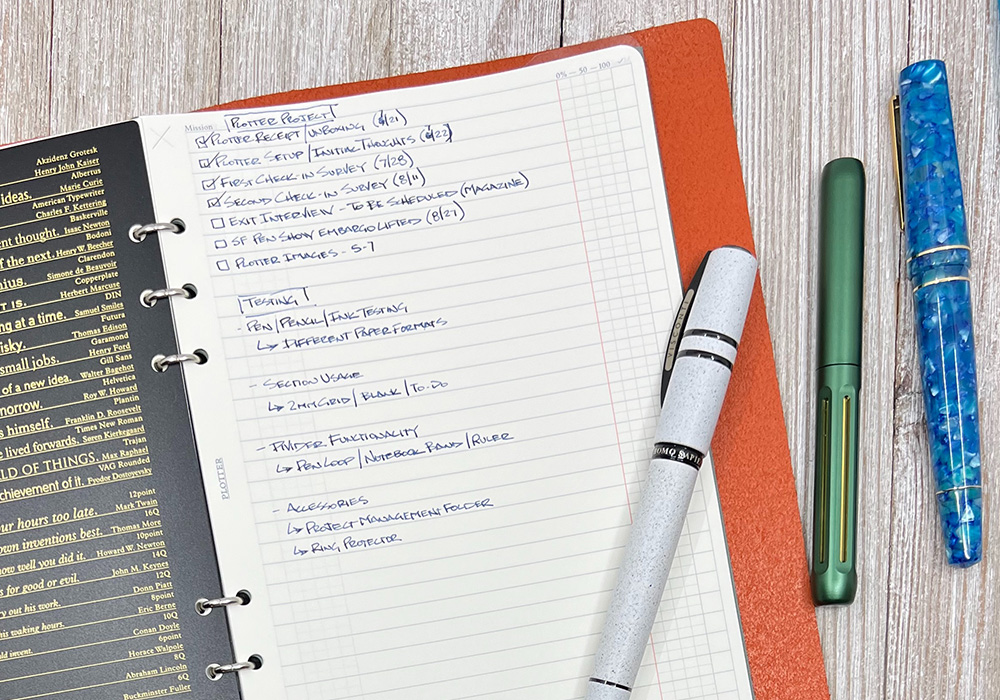 Akzidenz Grotesk
Henry John Kaiser
Albertus
ideas. Marie Curie
American Typewriter
Charles F. Kettering
Baskerville
ent thought. Isaac Newton
Bodoni
f the next. Henry W. Beecher
Clarendon
nius. Simone de Beauvoir
Copperplate
T IS. Herbert Marcuse
DIN
ng at a time. Samuel Smiles
Futura
isky. Thomas Edison
Garamond
small jobs. Henry Ford
Gill Sans
of a new idea. Walter Bagehot
Helvetica
morrow. Roy W. Howard
Plantin
s himself. Franklin D. Roosevelt
Times New Roman
e lived forwards. Søren Kierkegaard
Trajan
LD OF THINGS. Max Raphael
VAG Rounded
chievement of it. Fyodor Dostoyevsky
12point
our hours too late. Mark Twain
16Q
own inventions best. Thomas More
10point
how well you did it. Howard W. Newton
14Q
s for good or evil. John M. Keynes
12Q
ry out his work. Donn Piatt
8point
his waking hours. Eric Berne
10Q
ld invent. Conan Doyle
6point
Horace Walpole
8Q
Abraham Lincoln
6Q
Buckminster Fuller
PLOTTER
0% — 50 — 100
Mission PLOTTER PROJECT
PLOTTER RECEIPT/UNBOXING (6/21)
PLOTTER SETUP/INITIAL THOUGHTS (6/22)
FIRST CHECK-IN SURVEY (7/28)
SECOND CHECK-IN SURVEY (8/11)
EXIT INTERVIEW - TO BE SCHEDULED (MAGAZINE)
SF PEN SHOW EMBARGO LIFTED (8/27)
PLOTTER IMAGES - 5-7
TESTING
- PEN/PENCIL/INK TESTING
↳ DIFFERENT PAPER FORMATS
- SECTION USAGE
↳ 2MM GRID/BLANK/TO-DO
- DIVIDER FUNCTIONALITY
↳ PEN LOOP/NOTEBOOK BAND/RULER
- ACCESSORIES
↳ PROJECT MANAGEMENT FOLDER
↳ RING PROTECTOR
VISCONTI
OMO SAPIE